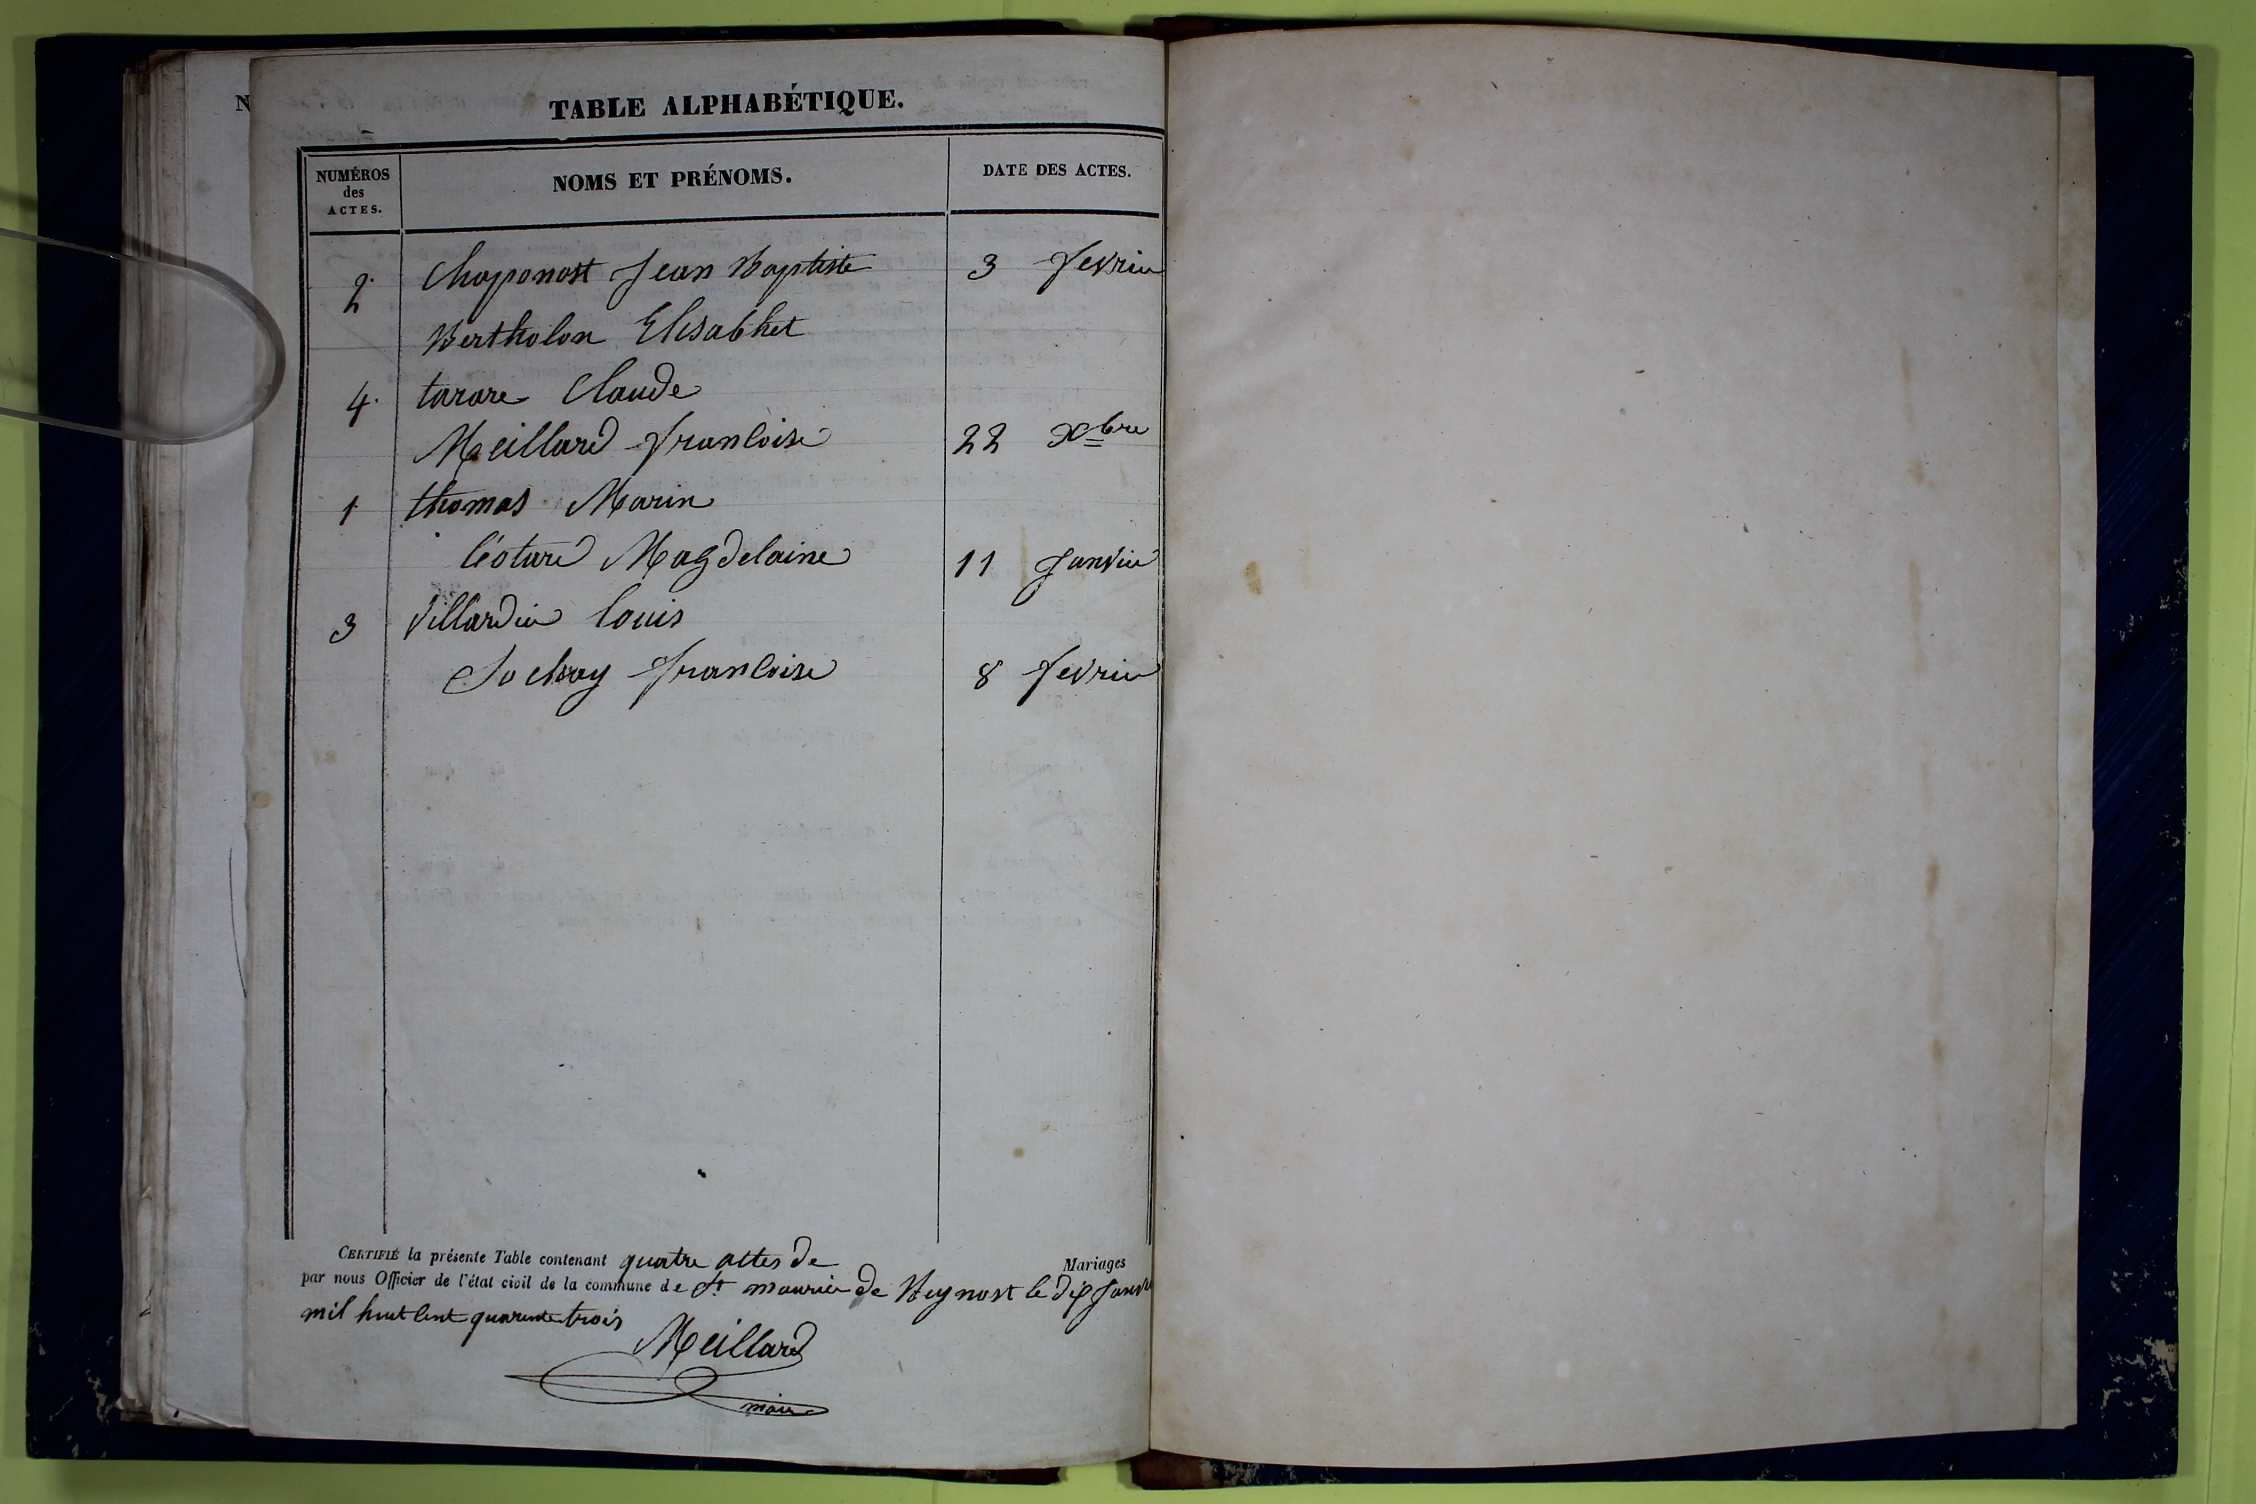 N
TABLE ALPHABÉTIQUE.
NUMÉROS
des
ACTES.
NOMS ET PRÉNOMS.
DATE DES ACTES.
2. Chaponost Jean Baptiste 3 fevrier
Bertholon Elisabhet
4. tarare Claude
Meillard francoise 22 Xbre
1 thomas Marin
Magdelaine 11 Janvier
3 Villardier louis
francoise 8 fevrier
CERTIFIÉ la présente Table contenant quatre actes de Mariages
par nous Officier de l'état civil de la commune de St maurice de Beynost le dix Janvier
mil huit cent quarente trois
Meillard
maire